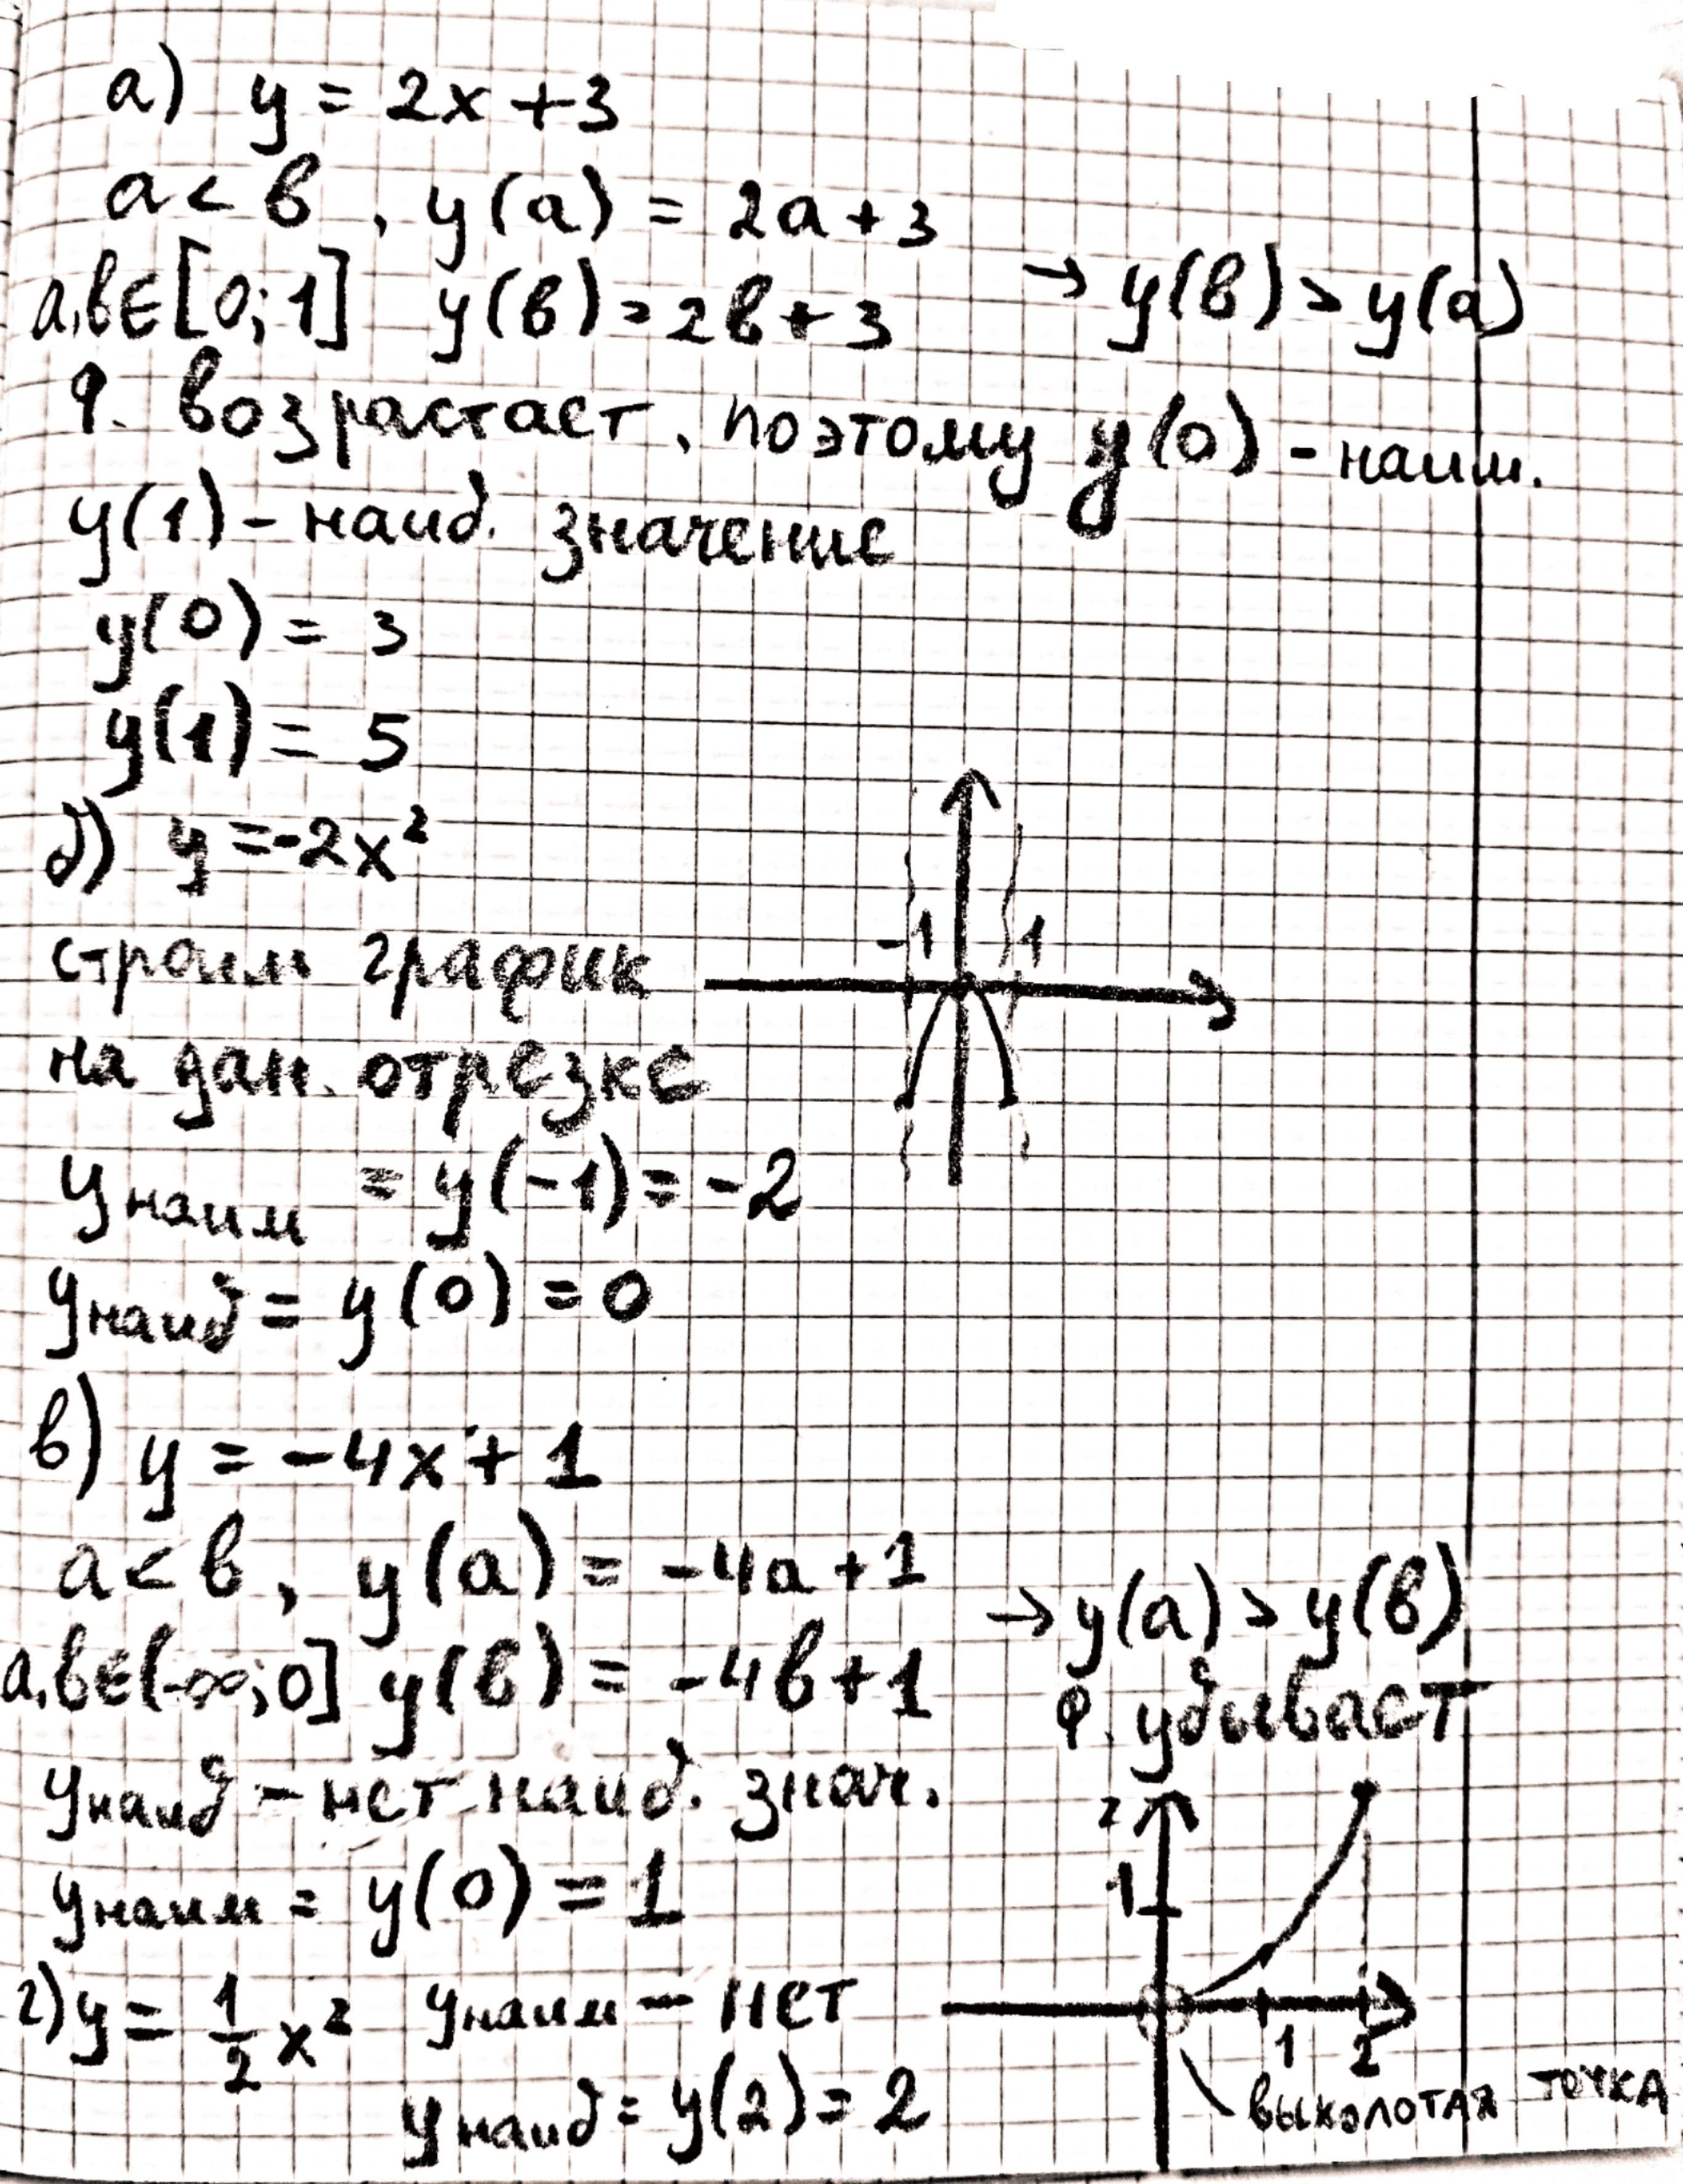 а) y = 2x + 3
a < b, y(a) = 2a + 3
a,b ∈ [0; 1] y(b) = 2b + 3 → y(b) > y(a)
Ф. возрастает, поэтому y(0) - наим.
y(1) - наиб. значение
y(0) = 3
y(1) = 5
б) y = -2x²
строим график
на дан. отрезке
-1 1
yнаим = y(-1) = -2
yнаиб = y(0) = 0
в) y = -4x + 1
a < b, y(a) = -4a + 1
a,b ∈ (-∞; 0] y(b) = -4b + 1 → y(a) > y(b)
Ф. убывает
yнаиб - нет наиб. знач.
yнаим = y(0) = 1
г) y = 1/2 x² yнаим - нет
yнаиб = y(2) = 2
2
1
1 2
выколотая точка